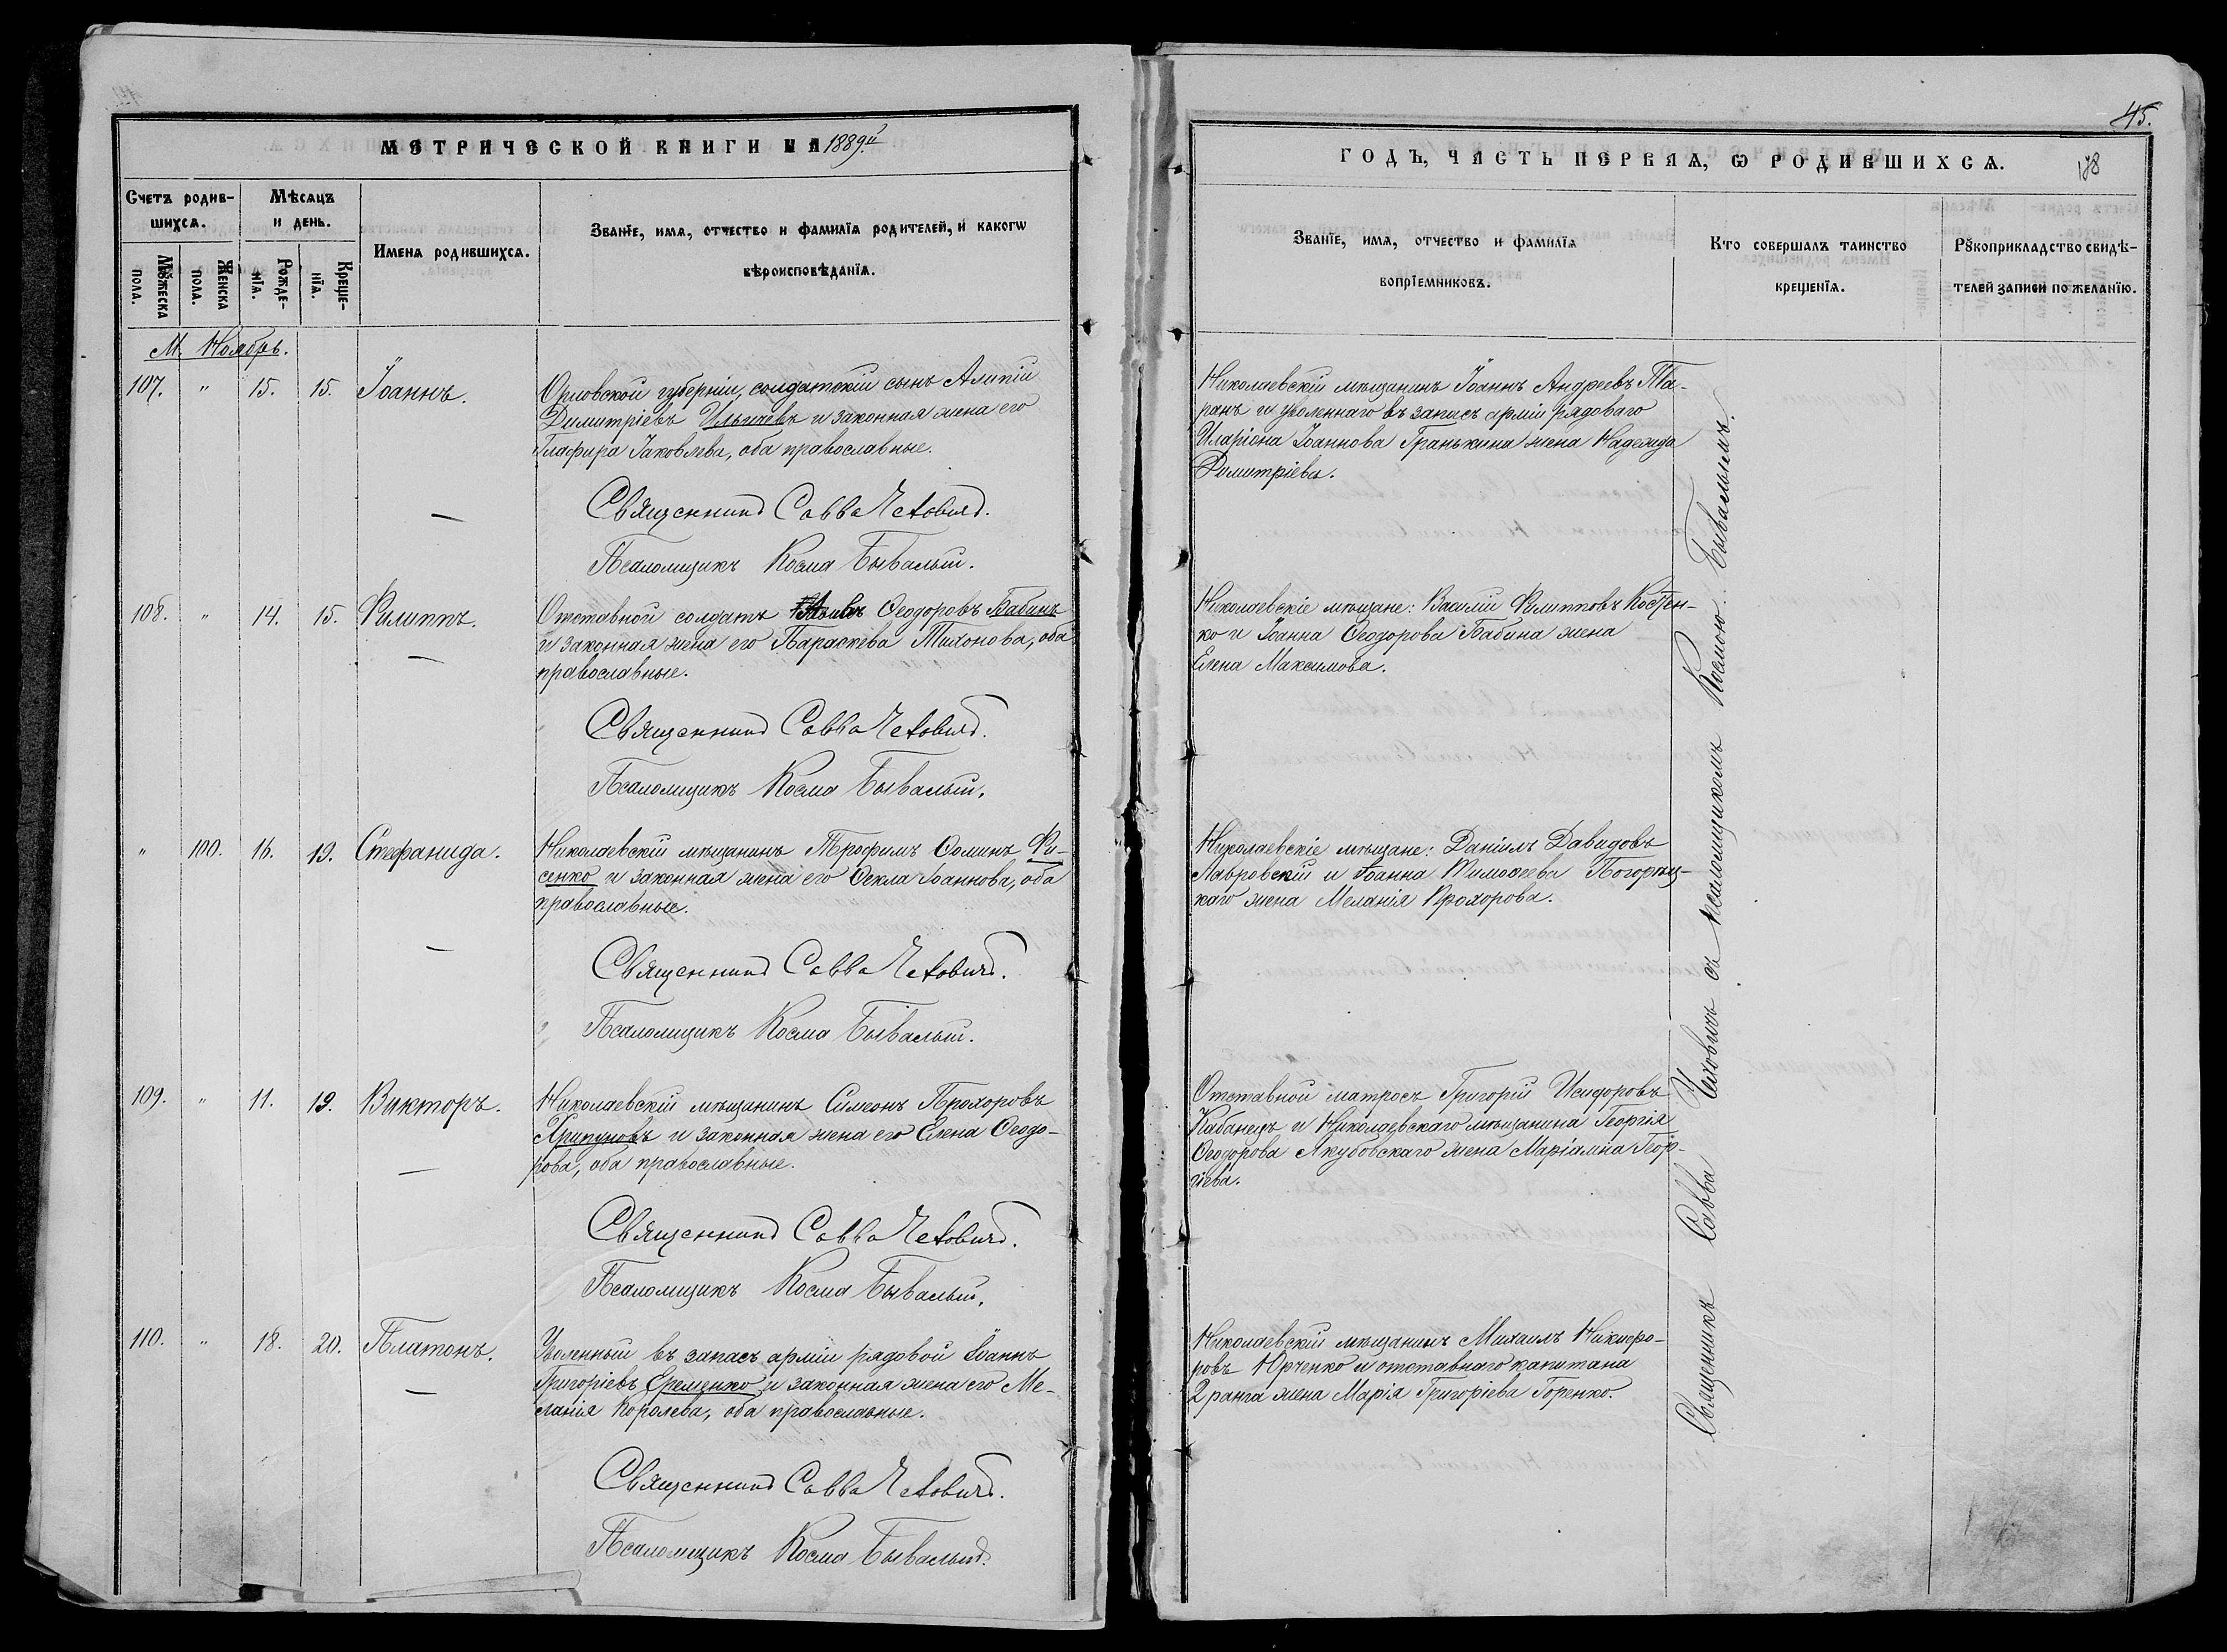 45.
178
МЕТРИЧЕСКОЙ КНИГИ НА 1889й
ГОДЪ, ЧАСТЬ ПЕРВАЯ, Ѡ РОДИВШИХСЯ.
Счетъ родив-
шихся.
Мѣсяцъ
и день.
Мꙋжеска
пола.
Женска
пола.
Рожде-
нїя.
Креще-
нїя.
Имена родившихся.
Званїе, имя, отчество и фамилїя родителей, и какогѡ
вѣроисповѣданїя.
Званїе, имя, отчество и фамилїя
вопрїемниковъ.
Кто совершалъ таинство
крещенїя.
Рꙋкоприкладство свидѣ-
телей записи по желанїю.
М. Ноябрь.
107. " 15. 15. Іоаннъ.
Орловской губерніи, солдатскій сынъ Алипій
Димитріевъ Ильичевъ и законная жена его
Глафира Іаковлева, оба православные.
Священникъ Савва Чеховичъ.
Псаломщикъ Косма Бывалый.
Николаевскій мѣщанинъ Іоаннъ Андреевъ Та-
ранъ и уволеннаго въ запасъ арміи рядоваго
Иларіона Іоаннова Гранькина жена Надежда
Димитріева.
108. " 14. 15. Филиппъ.
Отставной солдатъ Ѳеодоровъ Бабинъ
и законная жена его Параскева Тихонова, оба
православные.
Священникъ Савва Чеховичъ.
Псаломщикъ Косма Бывалый.
Николаевскіе мѣщане: Василій Филипповъ Костен-
ко и Іоанна Ѳеодорова Бабина жена
Елена Максимова.
" 100. 16. 19. Стефанида.
Николаевскій мѣщанинъ Трофимъ Ѳоминъ Фи-
сенко и законная жена его Ѳекла Іоаннова, оба
православные.
Священникъ Савва Чеховичъ.
Псаломщикъ Косма Бывалый.
Николаевскіе мѣщане: Даніилъ Давидовъ
Лавровскій и Іоанна Тимоѳеева Погорѣц-
каго жена Меланія Прохорова.
109. " 11. 19. Викторъ.
Николаевскій мѣщанинъ Симеонъ Прохоровъ
Хрипуновъ и законная жена его Елена Ѳеодо-
рова, оба православные.
Священникъ Савва Чеховичъ.
Псаломщикъ Косма Бывалый.
Отставной матросъ Григорій Исидоровъ
Кабанецъ и Николаевскаго мѣщанина Георгія
Ѳеодорова Якубовскаго жена Маріамна Геор-
гіева.
110. " 18. 20. Платонъ.
Уволенный въ запасъ арміи рядовой Іоаннъ
Григоріевъ Еременко и законная жена его Ме-
ланія Королева, оба православные.
Священникъ Савва Чеховичъ.
Псаломщикъ Косма Бывалый.
Николаевскій мѣщанинъ Михаилъ Никифо-
ровъ Юрченко и отставнаго капитана
2 ранга жена Марія Григоріева Горенко.
Священникъ Савва Чеховичъ съ псаломщикомъ Космою Бывалымъ.